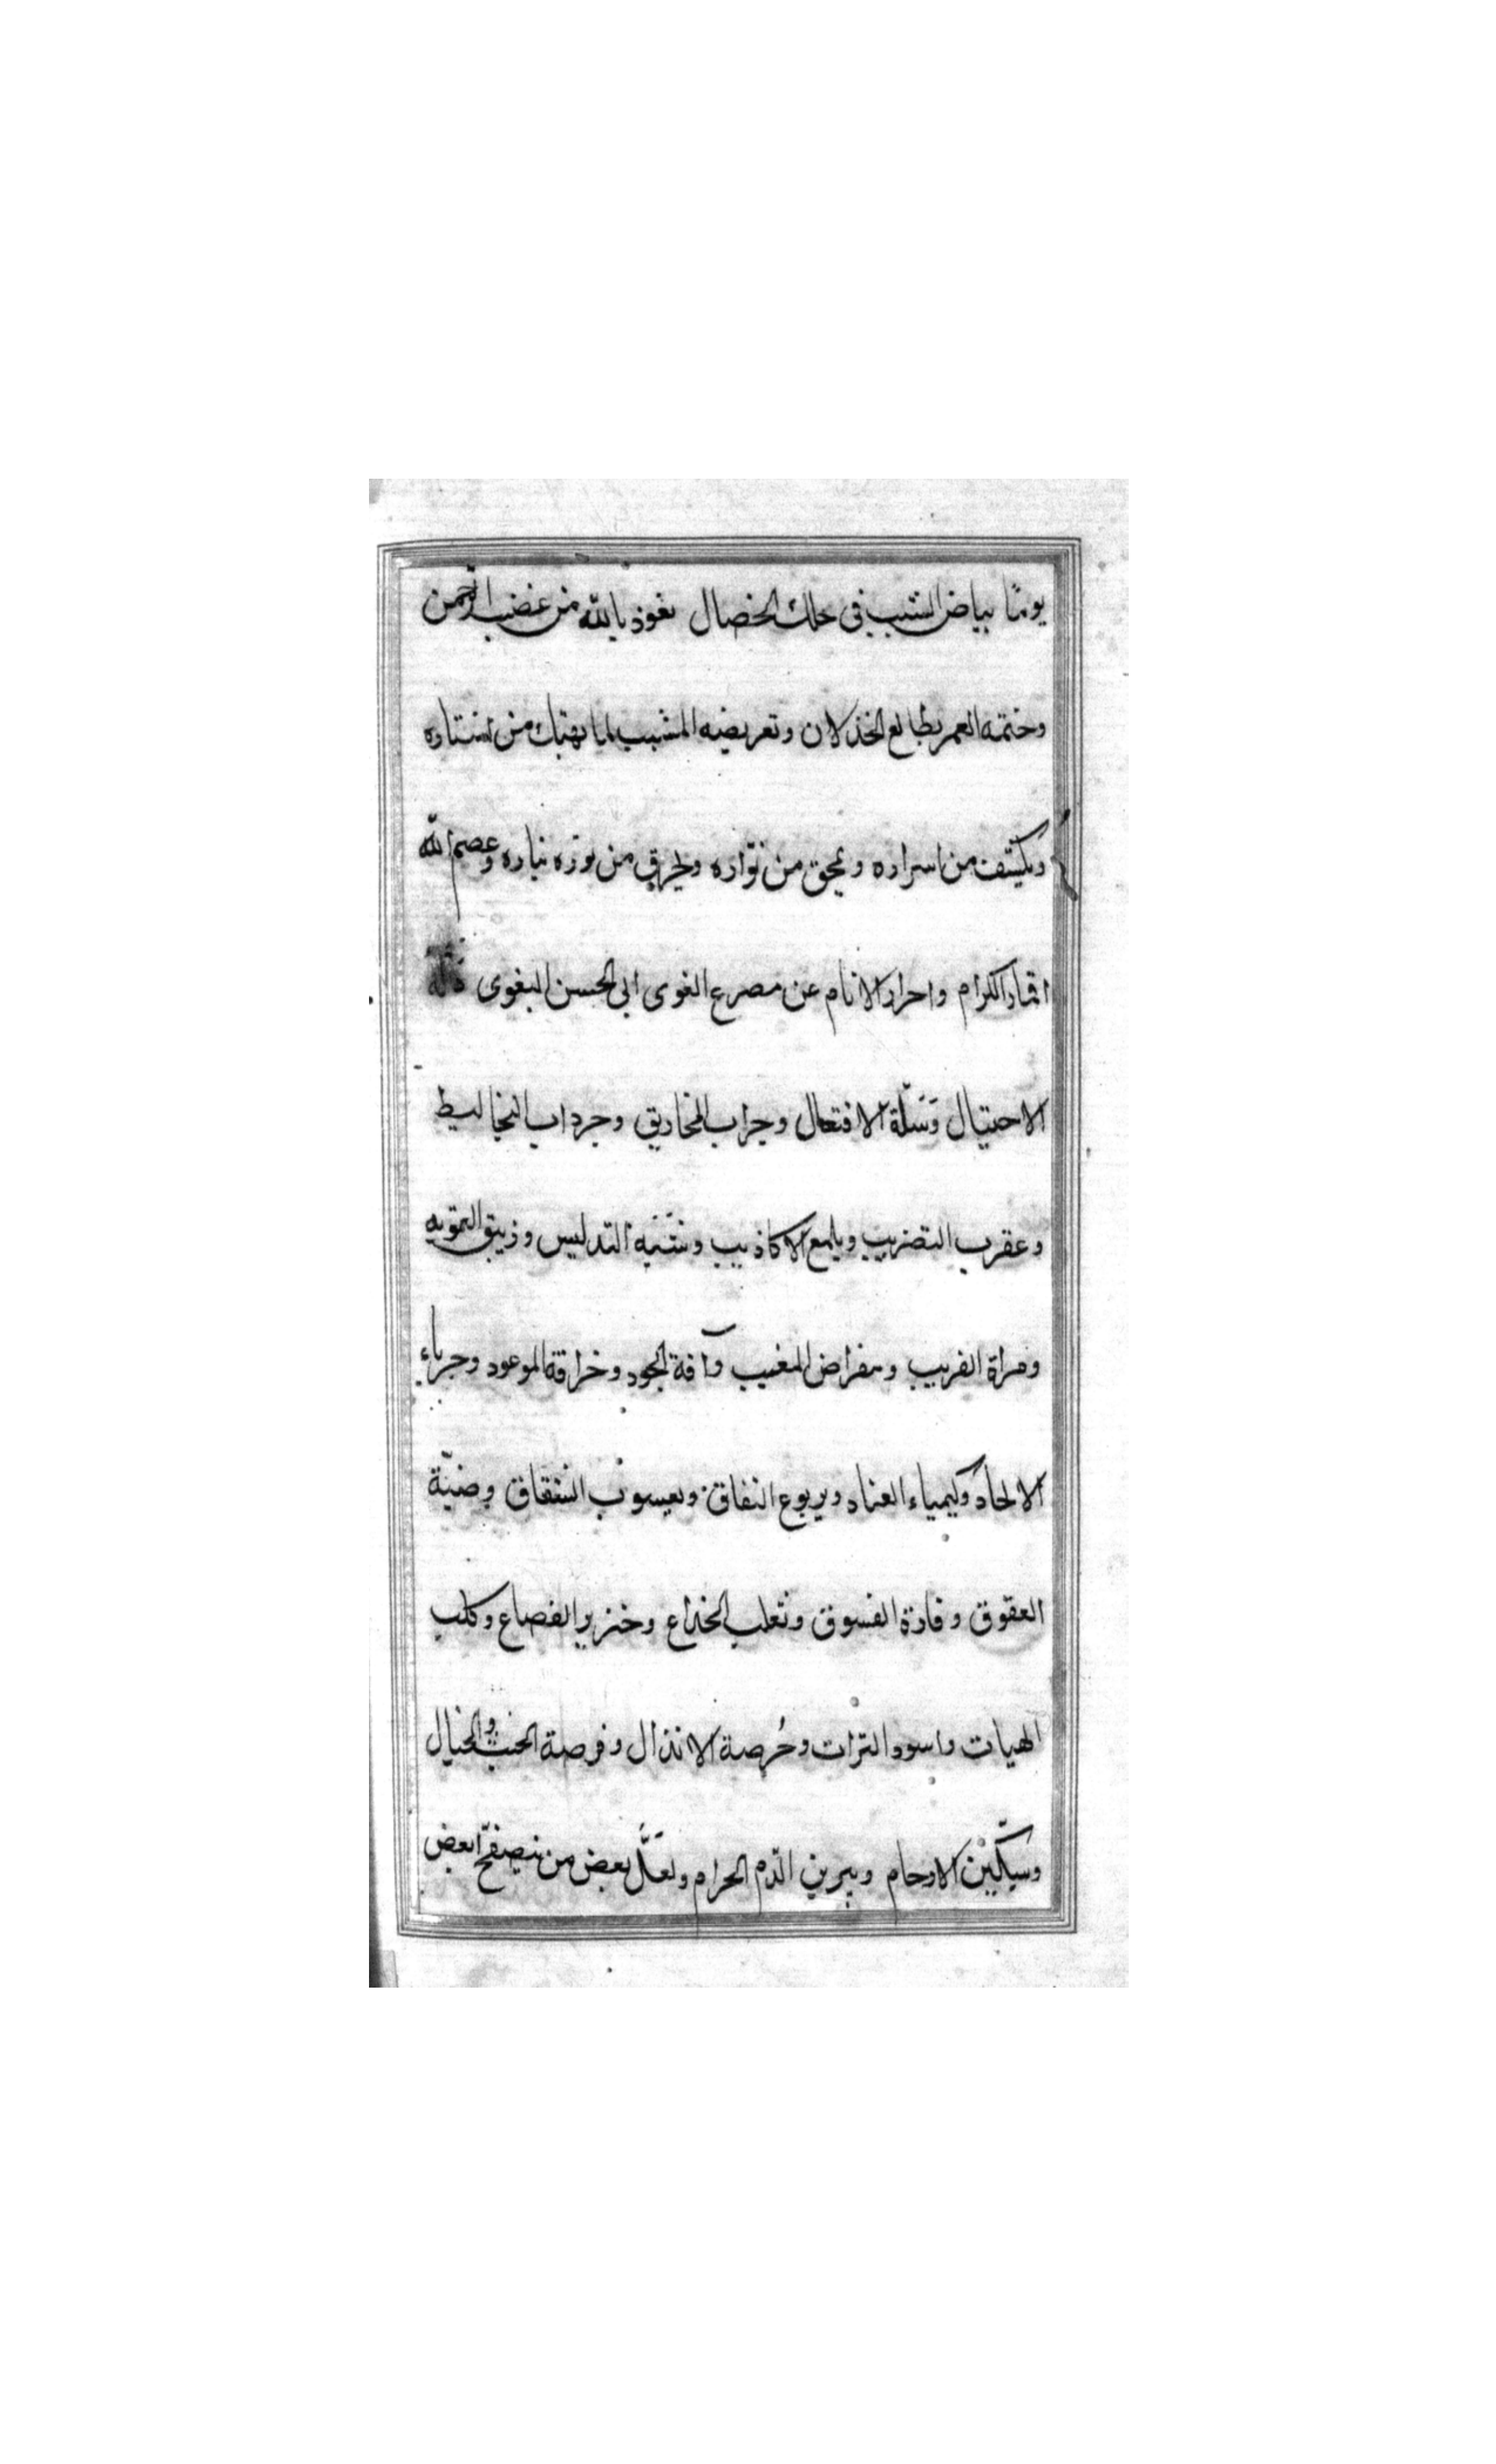 يومًا بياض الشيب فى حلك الخصال نعوذ بالله من غضب الرحمن
وختمه العمر بطابع الخذلان وتعريضه المشيب لما يهتك من استاره
ويكشف من اسراره ويمحق من نوّاره ويحرق من نوره بناره وعصم الله
اقمار الكرام واحرار الانام عن مصرع الغوى ابى الحسن البغوى
الاحتيال وسَلّة الافتعال وجراب المخاريق وجرداب التخاليط
وعقرب التضريب ويلمع الاكاذيب التدليس وزيبق التمويه
ومراة القريب ومقراض المغيب وآفة الجود وخرافة الموعود وحرباء
الالحاد وكيمياء العناد ويربوع النفاق ويعسوب الشقاق وضبّة
العقوق وفارة الفسوق وثعلب الخداع وخنزير القصاع وكلب
الهبات واسود الترات وحُرصة الانذال وفرصة الخبث والخبال
وسكّين الارحام الدّم الحرام ولعَلّ بعض من يتصفّح بعض